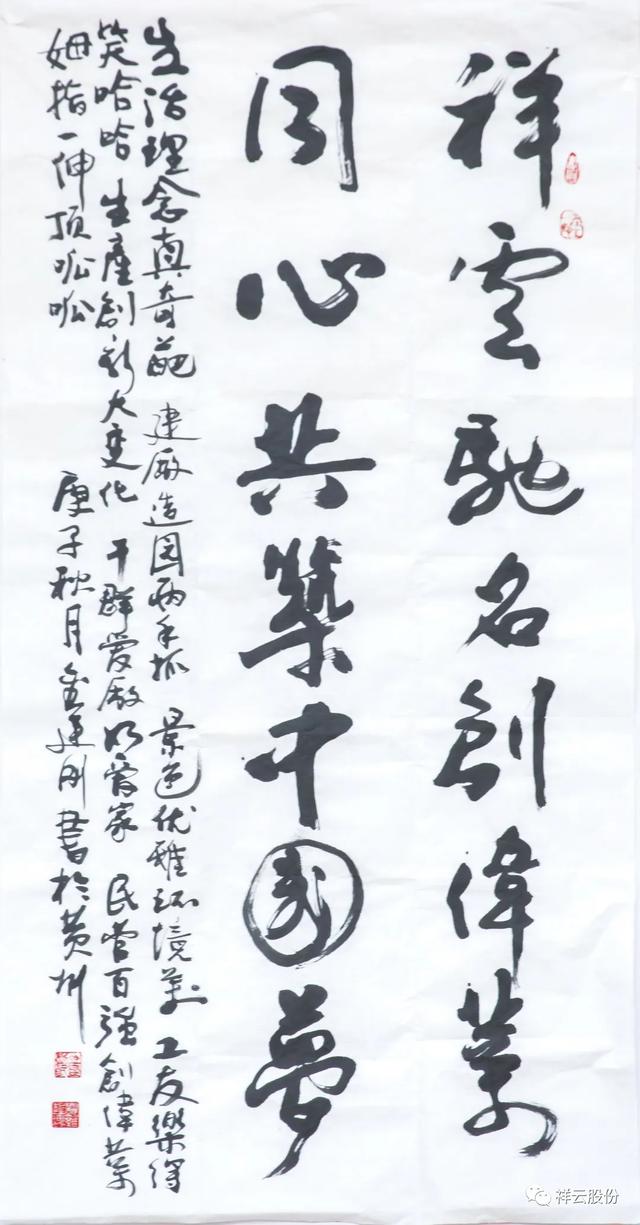 祥雲馳名創偉業
同心共築中國夢
生活理念真奇葩 建廠造园两手抓 景色优雅环境美 工友樂得
笑哈哈 生產創新大变化 干群爱廠家 民营百强創偉業
姆指一伸顶呱呱 庚子秋月金建刚書於黄州
祥云股份